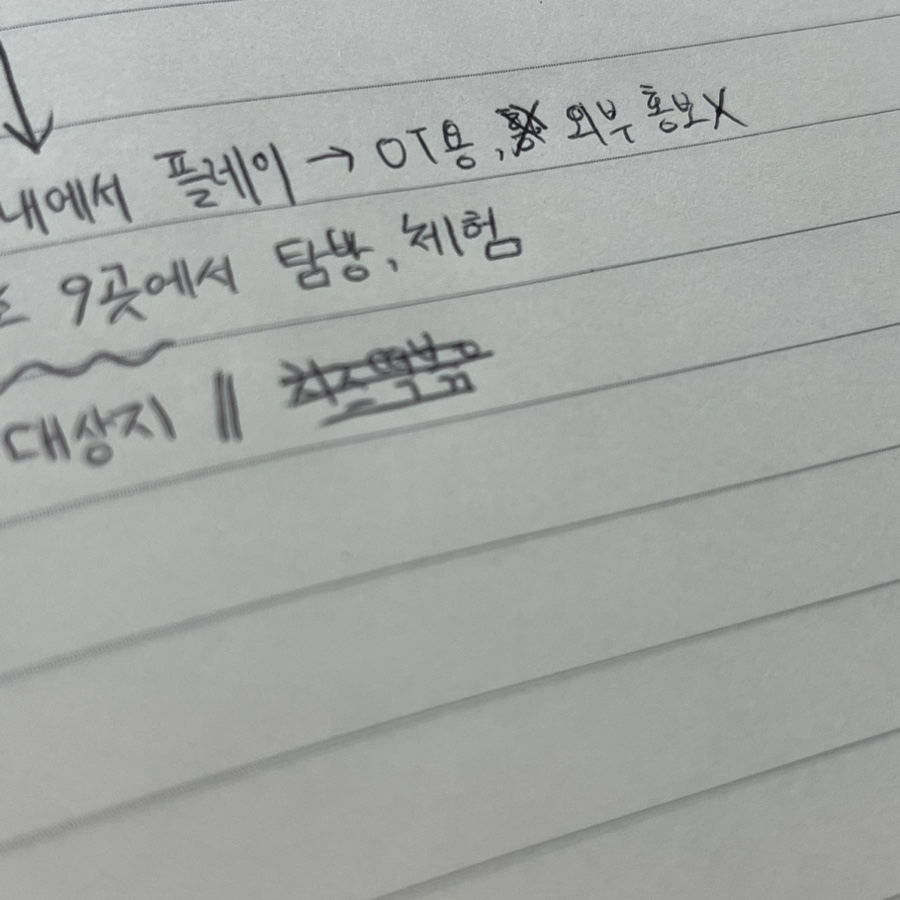 내에서 플레이 → OT용, 외부 홍보X
9곳에서 탐방, 체험
대상지 || 치즈떡볶음